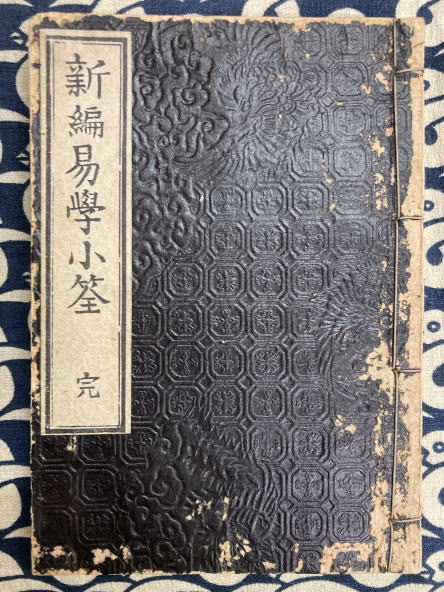 新編易學小筌 完